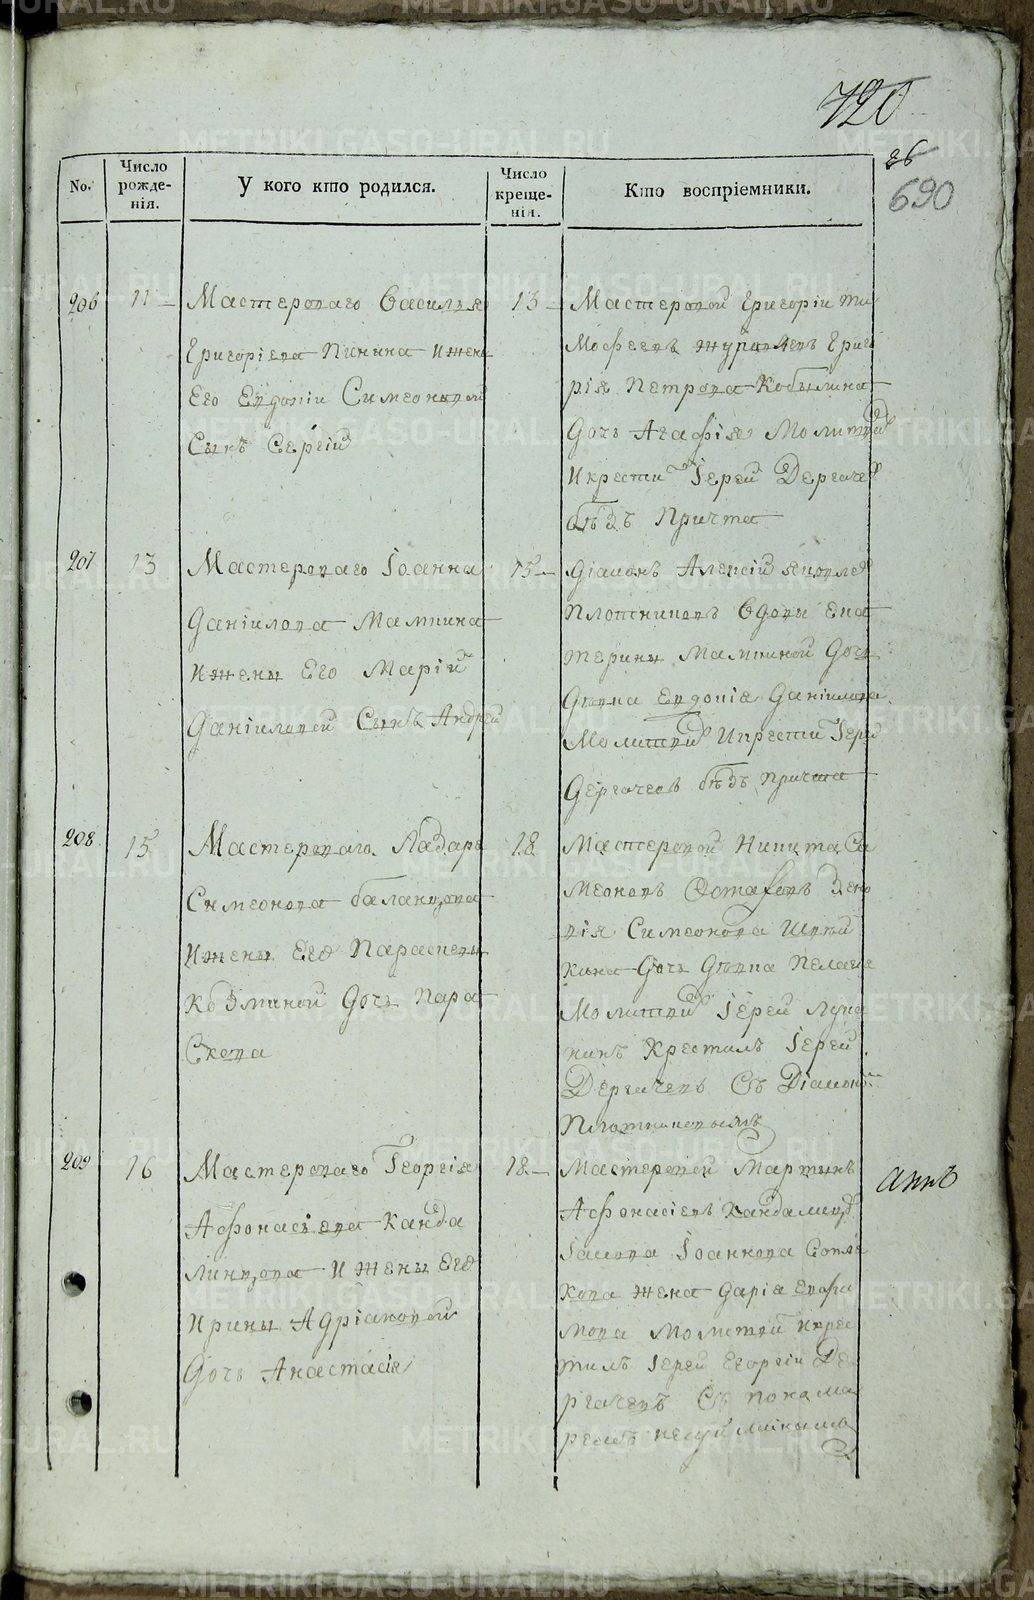 720
26
690
No.
Число рожде-нія.
У кого кто родился.
Число креще-нія.
Кто воспріемники.
206
11
Мастероваго Василья
Григоріева Пинина и жены
Его Евдокіи Симеоновой
Сынъ Сергій
13
Мастеровой Григорій Ти
мофеевъ Григо
рія Петрова Кобылина
дочь Агафія Молитвой
и крести Іерей Дергачев
бѣзъ Причта
207
13
Мастероваго Іоанна
Даніилова Мамкина
и жены Его Маріи
Даніиловой Сынъ Андрей
15
Діаконъ Алексій Яковлев
Плотниковъ Вдовы Ека
терины Мамкиной дочь
Евдокія Даніилова
Молитвой и крести Іерей
Дергачевъ бѣзъ Причта
208
15
Мастероваго Лазаря
Симеонова Баландина
и жены Его Параскевы
Козминой дочь Пара
скева
18
Мастеровой Никита Си
меоновъ Остафовъ
Симеонова
кина дочь Пелагея
Молитвой Іерей
Крестилъ Іерей
Дергачевъ съ Діакономъ
Плотниковымъ
209
16
Мастероваго Георгія
Афонасіева Канда
линцова и жены Его
Ирины Адріановой
дочь Анастасія
18
Мастеровой Мартынъ
Афонасіевъ
Іакова Іоаннова
кова жена Дарія Евфи
мова Молитвой и крес
тилъ Іерей Георгіи Де
ргачевъ съ Понама
ремъ
METRIKI.GASO-URAL.RU